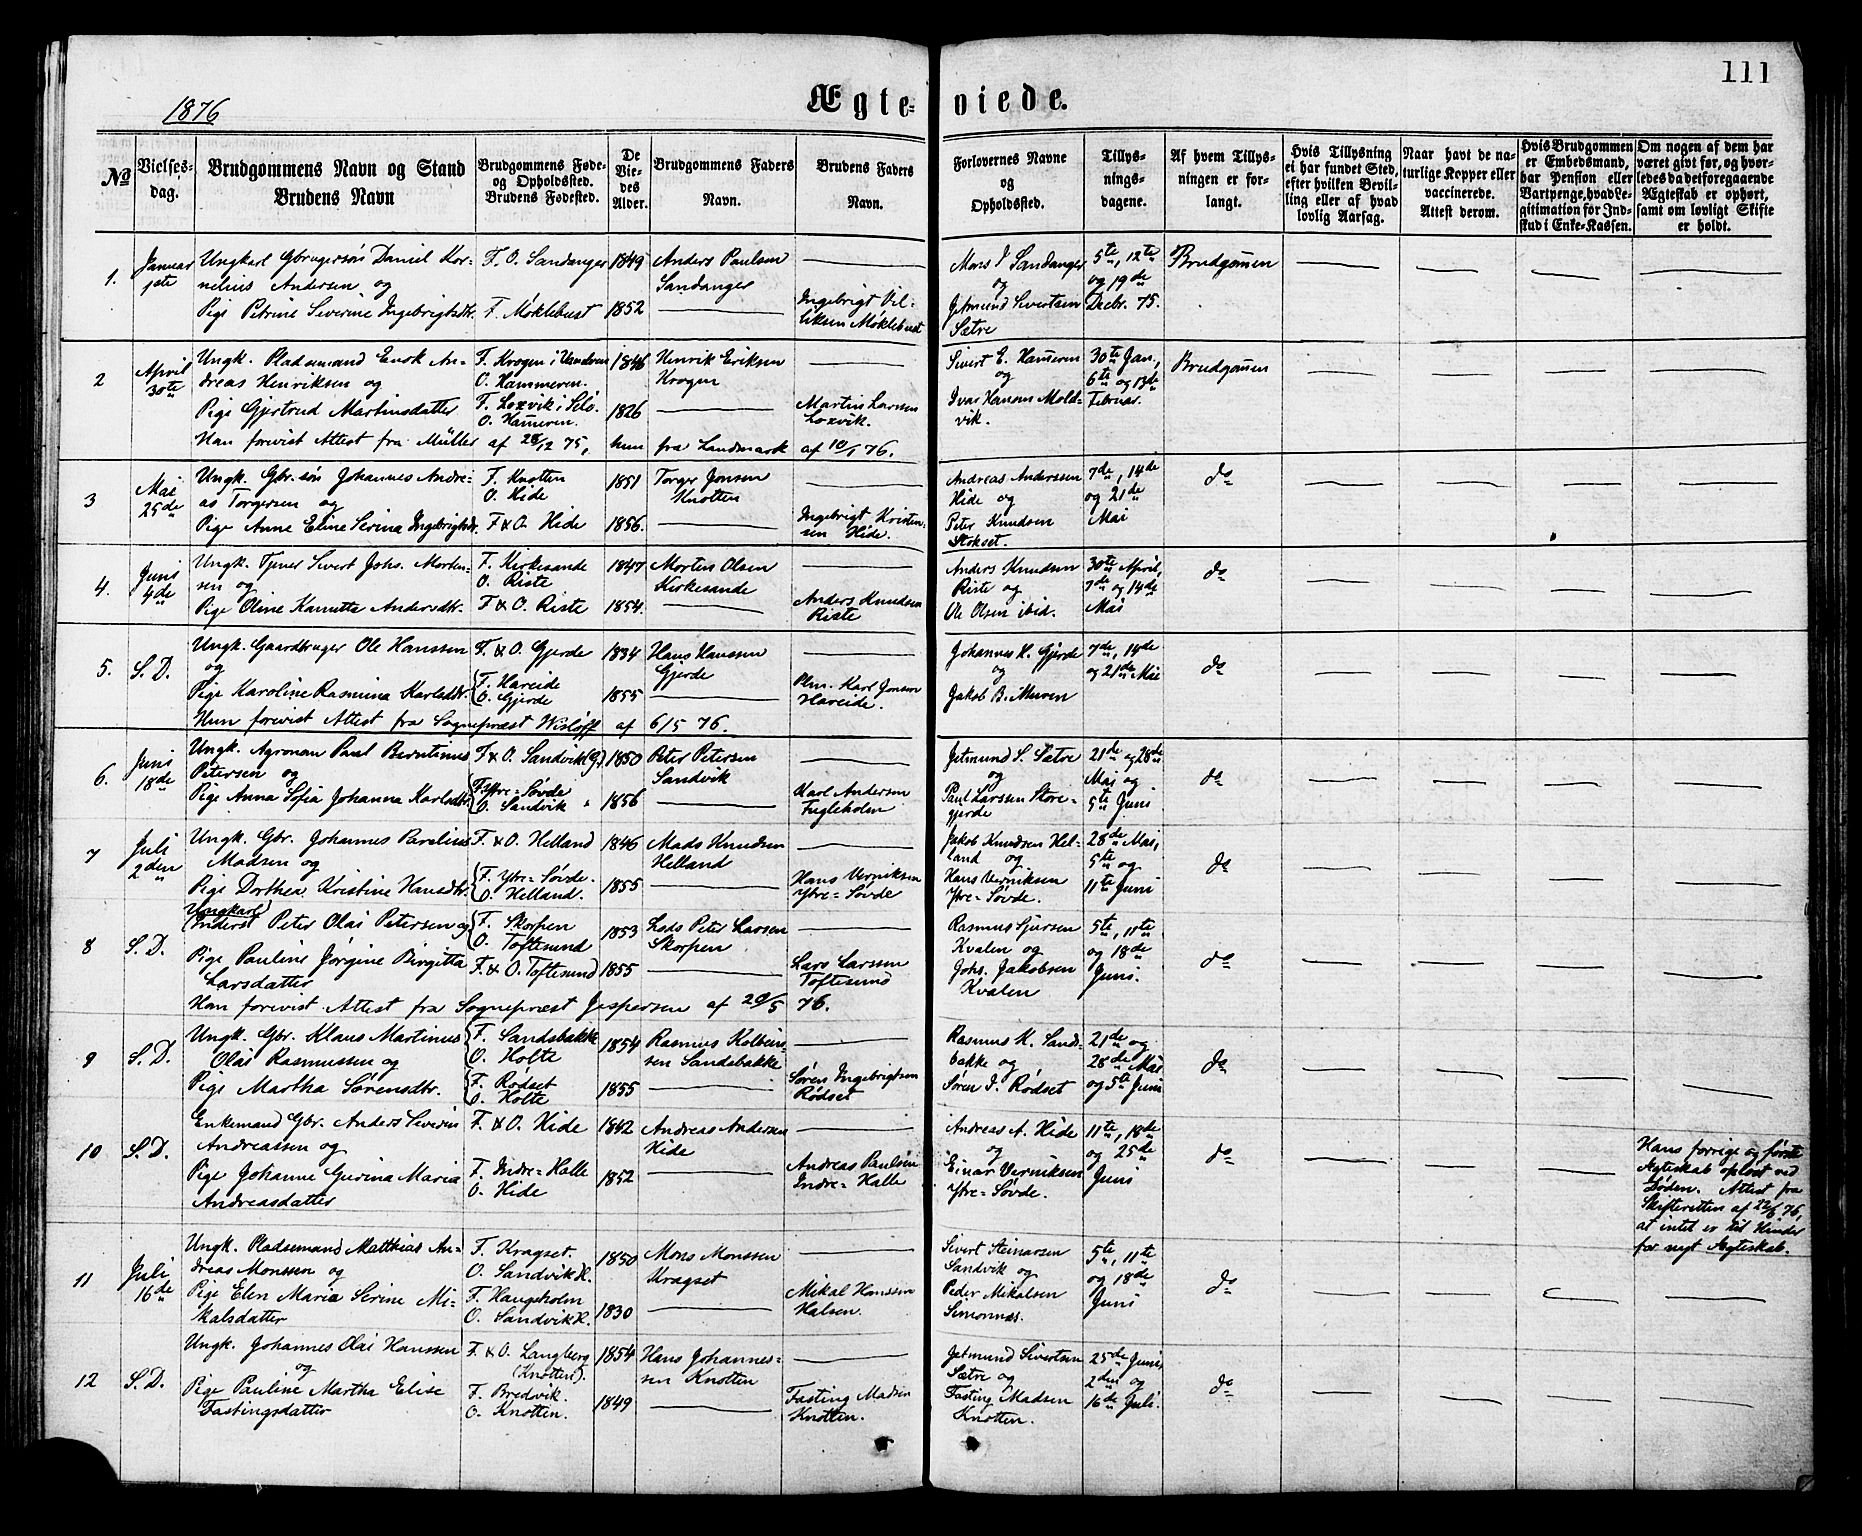 111
1876
Ægteviede.
No
Vielses-dag.
Brudgommens Navn og Stand
Brudens Navn
Brudgommens Føde- og Opholdssted.
Brudens Fødested.
De Viedes Alder.
Brudgommens Faders Navn.
Brudens Faders Navn.
Forlovernes Navne og Opholdssted.
Tillysningsdagene.
Af hvem Tillysningen er forlangt.
Hvis Tillysning ei har fundet Sted, efter hvilken Bevilling eller af hvad lovlig Aarsag.
Naar havt de naturlige Kopper eller vaccinerede. Attest derom.
Hvis Brudgommen er Embedsmand, har Pension eller Vartpenge, hvad Legitimation for Indskud i Enke-Kassen.
Om nogen af dem har været givt før, og hvorledes da det foregaaende Ægteskab er ophørt, samt om lovligt Skifte er holdt.
1. Januar 1ste
Ungkarl Gbrugersøn Daniel Cornelius Andersen og
Pige Petrine Severine Ingebrigtsdtr.
F. O. Sandanger
F. Møklebust
1849
1852
Anders Paulsen Sandanger
Ingebrigt Møklebust
Mons J Sandanger og
Jetmund Sivertsen Sætre
5te, 12te og 19de Decbr. 75.
Brudgommen
2 April 30te
Ungk. Pladsemand Enok Andreas Henriksen og
Pige Gjertrud Martinsdatter
F. Krogen i Vandven
O. Hammeren.
F. Loxvik i Selö.
O. Hameren.
1846
1826
Henrik Eriksen Krogen
Martin Larsen Loxvik.
Sivert E. Hameren og
Ivar Hansen Moldvik.
30te Jan., 6te og 13de Februar.
Brudgommen
Han forevist Attest fra Müller af 28/12 75, hun fra Landmark af 10/1 76.
3 Mai 25de
Ungk. Gbr.søn Johannes Andreas Torgersen og
Pige Anne Eline Serina Ingebrigtsdr.
F. Knotten
O. Hide
F & O. Hide
1851
1856.
Torger Jonsen Knotten
Ingebrigt Kristensen Hide.
Andreas Anderssen Hide og
Peter Knudsen Stokset.
7de, 14de og 21de Mai
do
4. Juni 4de
Ungk. Tjener Sivert Johs. Mortensen og
Pige Oline Kanutta Andersdtr.
F. Kirkesande
O. Riste
F & O. Riste
1847
1854.
Morten Olsen Kirkesande
Anders Knudsen Riste
Anders Knudsen Riste og
Ole Olsen ibid.
30te April, 7de og 14de Mai
do
5. S. D.
Ungk. Gaardbruger Ole Hanssen og
Pige Karoline Rasmina Karlsdtr.
F. & O. Gjerde
F. Hareide
O. Gjerde
1834
1855
Hans Hanssen Gjerde
Karl Jonsen Hareide.
Johannes H. Gjerde og
Jakob B. Muren
7de, 14de og 21de Mai
do
Hun forevist Attest fra Sognepræst Wisløff af 6/5 76.
6. Juni 18de
Ungk. Agronom Paul Berntinus Petersen og
Pige Anna Sofia Johanna Karlsdtr.
F & O. Sandvik (G.)
F. Ytre-Søvde
O. Sandvik "
1850
1856
Peter Petersen Sandvik
Karl Andersen Fugleholm
Jetmund S. Sætre og
Paul Larssen Storegjerde
21de og 28de Mai og 5te Juni
do
7 Juli 2den
Ungk. Gbr. Johannes Parelius Madsen og
Pige Dorthea Kristine Hansdtr.
F. & O. Helland
F. Ytre-Søvde.
O. Helland.
1846
1855
Mads Knudsen Helland
Hans Verniksen Ytre-Søvde
Jakob Knudsen Helland og
Hans Verniksen Ytre-Søvde.
28de Mai, 5te og 11te Juni
do
8 S. D.
Ungkarl Inders Peter Olai Petersen og
Pige Pauline Jørgine Birgitta Larsdatter
F. Skorpen
O. Toftesund
F. & O. Toftesund
1853
1855
Lods Peter Larsen Skorpen
Lars Larssen Toftesund
Rasmus Sjursen Kvalen og
Johs. Jakobsen Kvalen
5te, 11te og 18de Juni.
do
Han forevist Attest fra Sognepræst Jespersen af 29/5 76.
9 S. D.
Ungk. Gbr. Klaus Martinus Olai Rasmussen og
Pige Martha Sørensdtr.
F. Sandsbakke
O. Holte
F. Rødset
O. Holte
1854
1855
Rasmus Kolbeinsen Sandsbakke
Søren Ingebrigtsen Rødset
Rasmus K. Sandsbakke og
Søren I. Rødset
21de og 28de Mai og 5te Juni
do
10 S. D.
Enkemand Gbr. Anders Severin Andreassen og
Pige Johanne Gurina Maria Andreasdatter
F. & O. Hide
F. Indre-Halle
O. Hide
1842
1852
Andreas Andersen Hide
Andreas Paulsen Indre-Halle
Andreas A. Hide og
Einar Verniksen Ytre-Søvde.
11te, 18de og 25de Juni
do
Hans forrige og første Ægteskab opløst ved Døden. Attest fra Skifteretten af 22/6 76, at intet er til Hinder for nyt Ægteskab.
11 Juli 16de
Ungk. Pladsemand Matthias Andreas Monssen og
Pige Elen Maria Serine Mikalsdatter
F. Kragset.
O. Sandvik K.
F. Haugeholm
O. Sandvik K.
1850
1830
Mons Monssen Kragset
Mikal Hanssen Halsen.
Sivert Steinarsen Sandvik og
Peder Mikalsen Simonnes.
5te, 11te og 18de Juni
do
12 S. D.
Ungk. Johannes Olai Hanssen og
Pige Pauline Martha Elise Fastingsdatter
F. & O. Langberg (Knotten).
F. Bredvik.
O. Knotten.
1854
1849
Hans Johannessen Knotten
Fasting Madsen Knotten.
Jetmund Sivertsen Sætre og
Fasting Madsen Knotten.
25de Juni, 2den og 16de Juli.
do